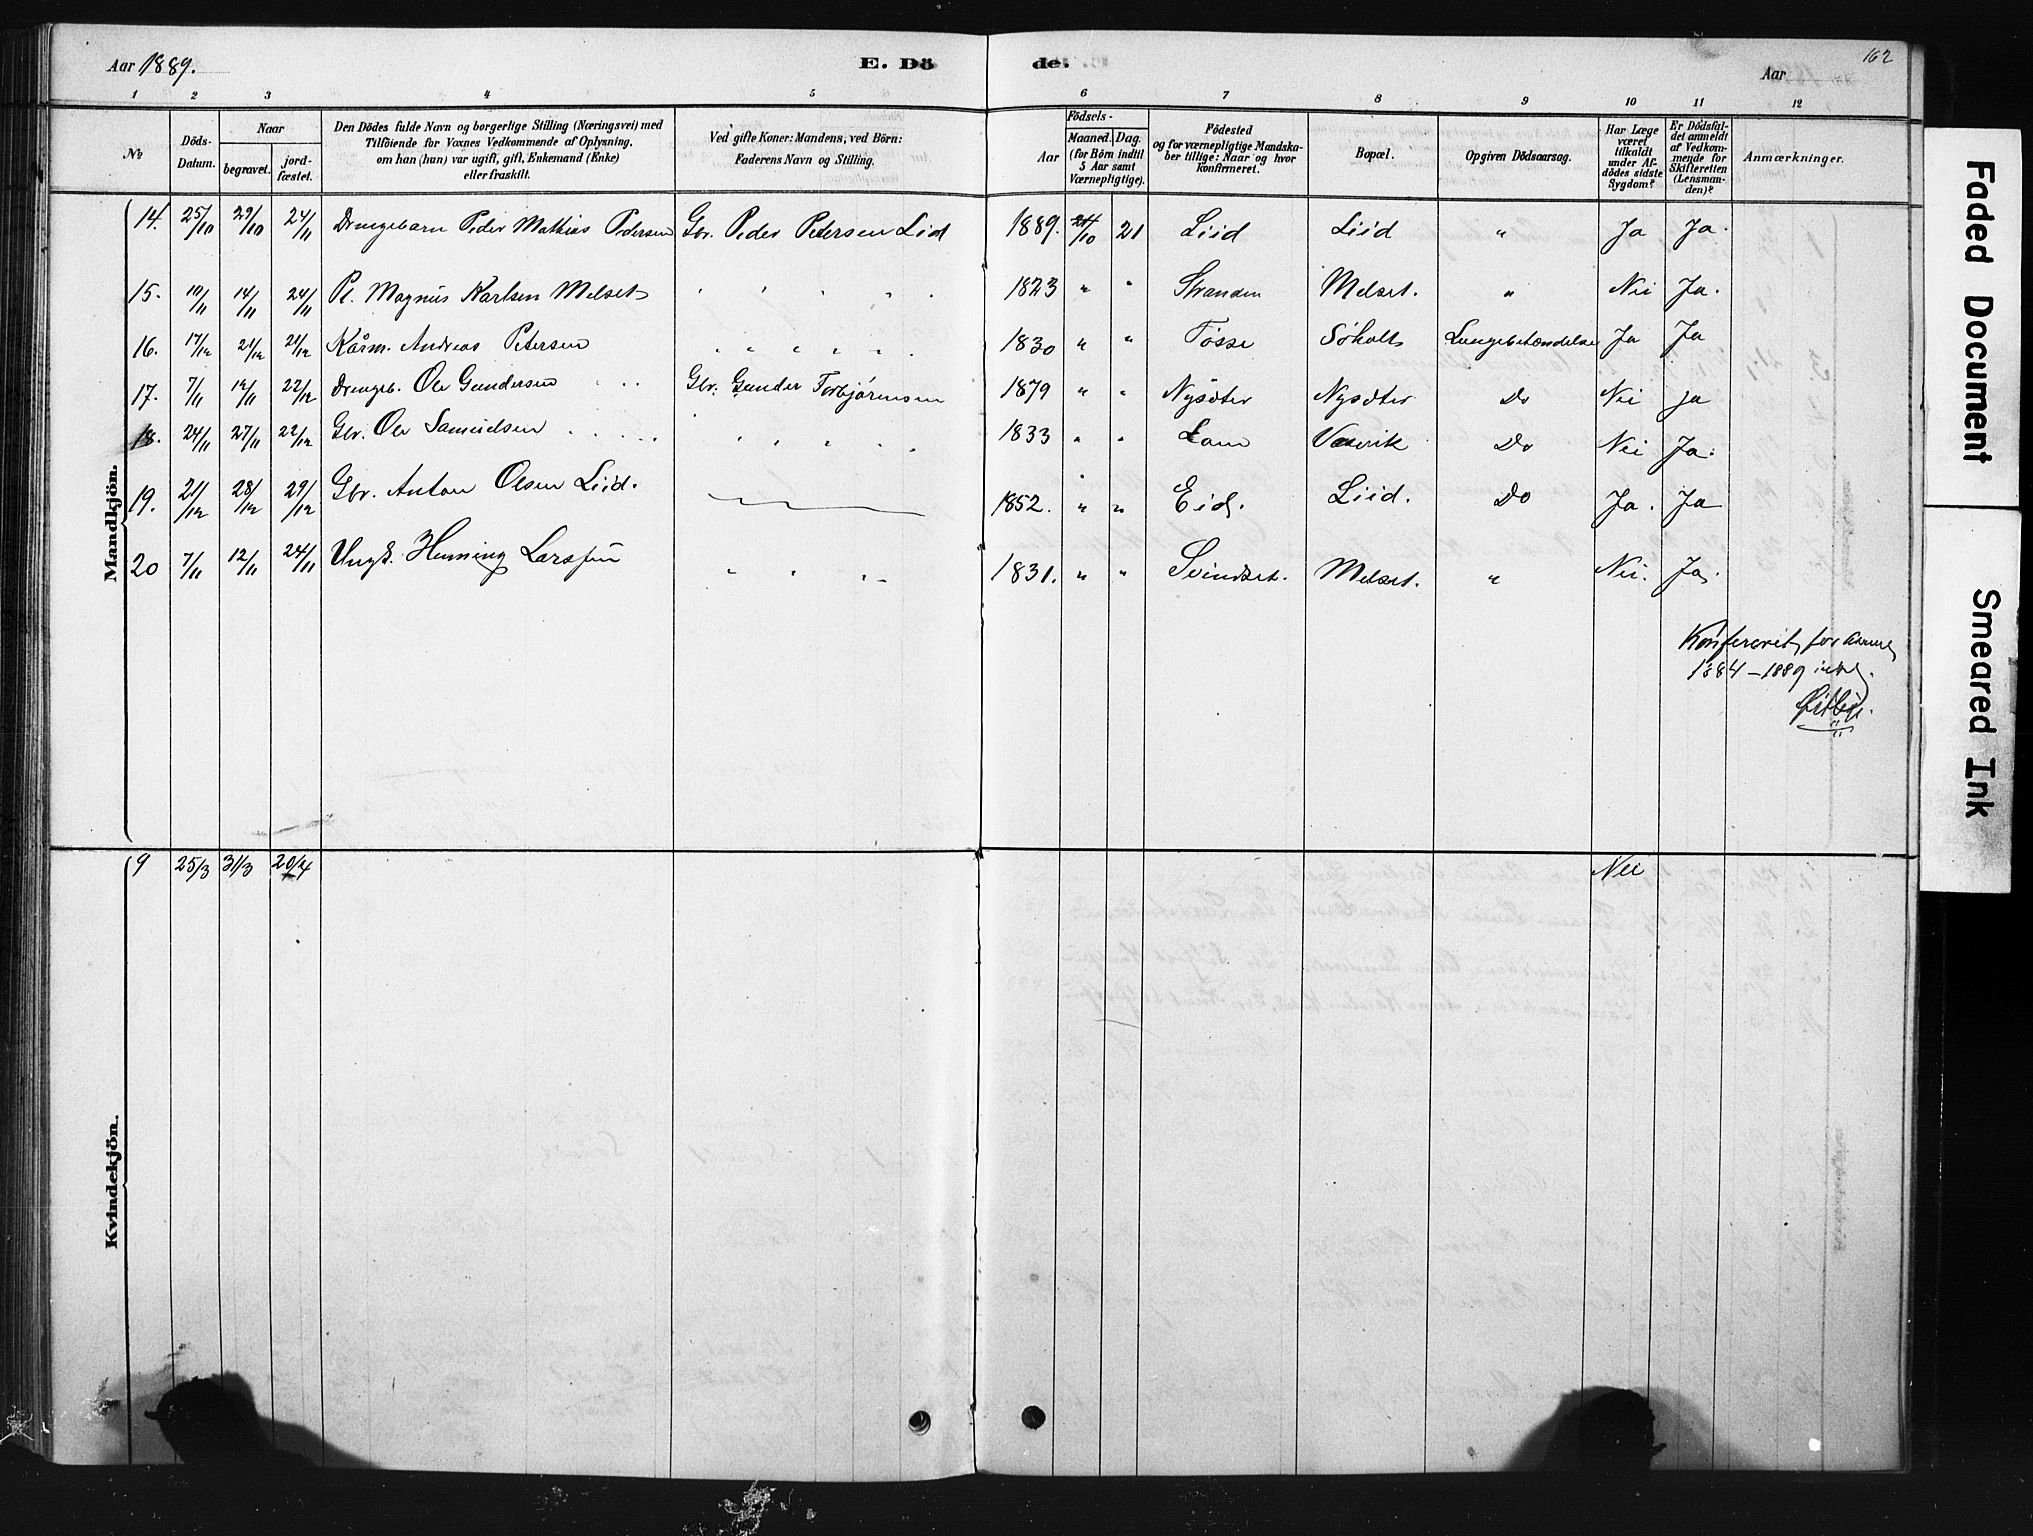 Aar 1889. E. Dö de. Aar 162
1 2 3 4 5 6 7 8 9 10 11 12
No Döds-Datum. Naar begravet. jord-fæstet. Den Dödes fulde Navn og borgerlige Stilling (Næringsvei) med Tilföiende for Voxnes Vedkommende af Oplysning, om han (hun) var ugift, gift, Enkemand (Enke) eller fraskilt. Ved gifte Koner: Mandens, ved Börn: Faderens Navn og Stilling. Födsels- Aar Maaned. Dag. (for Börn indtil 5 Aar samt Værnepligtige). Födested og for værnepligtige Mandskaber tillige: Naar og hvor konfirmeret. Bopæl. Opgiven Dödsaarsag. Har Læge været tilkaldt under Afdödes sidste Sygdom? Er Dödsfaldet anmeldt af Vedkommende for Skifteretten (Lensmanden)? Anmærkninger.
Mandkjön.
14. 25/10 29/10 24/11 Drengebarn Peder Mathias Pedersen Gbr. Peder Petersen Liid 1889. 21 Liid Liid " Ja Ja.
15. 10/11 14/11 24/11 Pl. Magnus Karlsen Melset " " " " " 1823 " " Stranden Melset. " Nei Ja.
16. 17/12 21/12 21/12 Kårm. Andreas Petersen " " " " " 1830 " " Tøsse Søholt Lungebetændelse Ja Ja
17. 7/11 12/11 22/12 Drengeb. Ole Gundersen Gbr. Gunder Torbjørnsen 1879 " " Nysæter Nysæter Do Nei ja
18. 24/11 27/11 22/12 Gbr. Ole Samuelsen " " " " " 1833 " " Lom Do Nei Ja.
19. 21/12 28/12 29/12 Gbr. Anton Olsen Liid. 1852. " " Eid. Liid. Do Ja. Ja
20 7/11 12/11 24/11 Ungk. Heming Larssen " " " " 1831. " " Svindset. Melset. " Nei. Ja.
Konfereret for Aarene
1884 – 1889 inkl.
Kvindekjön.
9 25/3 31/3 20/4 Nei
Faded Document
Smeared Ink